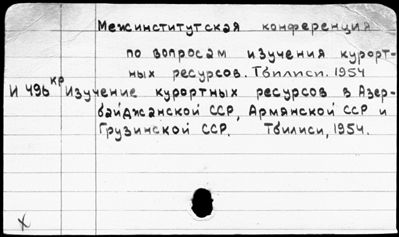 Межинститутская конференция
по вопросам изучения курорт-
ных ресурсов. Тбилиси. 1954
И 496 кр Изучение курортных ресурсов в Азер-
байджанской ССР, Армянской ССР и
Грузинской ССР. Тбилиси, 1954.
X